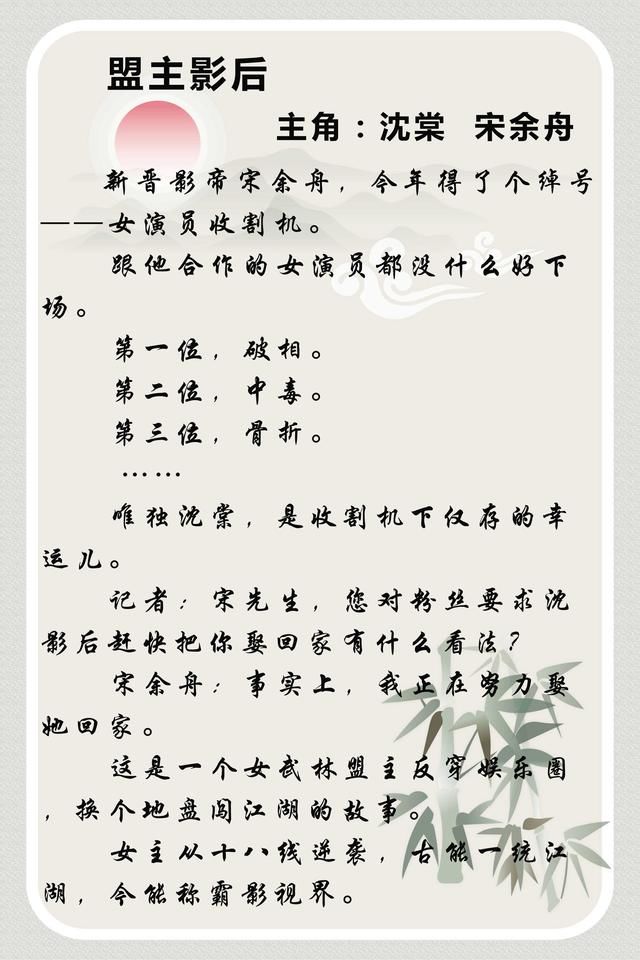 盟主影后
主角：沈棠 宋余舟
新晋影帝宋余舟，今年得了个绰号
——女演员收割机。
跟他合作的女演员都没什么好下
场。
第一位，破相。
第二位，中毒。
第三位，骨折。
……
唯独沈棠，是收割机下仅存的幸
运儿。
记者：宋先生，您对粉丝要求沈
影后赶快把你娶回家有什么看法？
宋余舟：事实上，我正在努力娶
她回家。
这是一个女武林盟主反穿娱乐圈
，换个地盘闯江湖的故事。
女主从十八线逆袭，古能一统江
湖，今能称霸影视界。